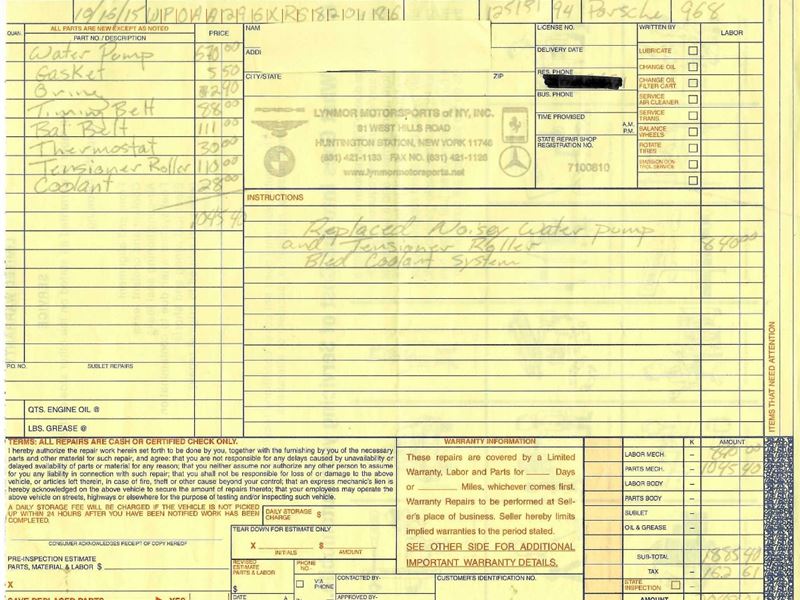 10/16/15 94 Porsche 968
QUAN. ALL PARTS ARE NEW EXCEPT AS NOTED PRICE NAME LICENSE NO. WRITTEN BY LABOR
PART NO. / DESCRIPTION
Water Pump
Gasket 5 50
Timing Belt 88 00
Bal Belt 111 00
Thermostat 30 00
Tensioner Roller 110 00
Coolant 28 00
1045 40
ADD
CITY/STATE ZIP
LYNMOR MOTORSPORTS of NY, INC.
91 WEST HILLS ROAD
HUNTINGTON STATION, NEW YORK 11746
(631) 421-1133 FAX NO. (631) 421-1126
www.lynmormotorsports.net
DELIVERY DATE
RES. PHONE
BUS. PHONE
TIME PROMISED
A.M.
P.M.
STATE REPAIR SHOP
REGISTRATION NO.
7100810
LUBRICATE
CHANGE OIL
CHANGE OIL
FILTER CART.
SERVICE
AIR CLEANER
SERVICE
TRANS.
BALANCE
WHEELS
ROTATE
TIRES
INSTRUCTIONS
Replaced Noisey Water pump
and Tensioner Roller 840 00
Bled Coolant System
ITEMS THAT NEED ATTENTION
P.O. NO. SUBLET REPAIRS
QTS. ENGINE OIL @
LBS. GREASE @
TERMS: ALL REPAIRS ARE CASH OR CERTIFIED CHECK ONLY.
I hereby authorize the repair work herein set forth to be done by you, together with the furnishing by you of the necessary
parts and other material for such repair, and agree: that you are not responsible for any delays caused by unavailability or
delayed availability of parts or material for any reason; that you neither assume nor authorize any other person to assume
for you any liability in connection with such repair; that you shall not be responsible for loss of or damage to the above
vehicle, or articles left therein, in case of fire, theft or other cause beyond your control; that an express mechanic's lien is
hereby acknowledged on the above vehicle to secure the amount of repairs thereto; that your employees may operate the
above vehicle on streets, highways or elsewhere for the purpose of testing and/or inspecting such vehicle.
A DAILY STORAGE FEE WILL BE CHARGED IF THE VEHICLE IS NOT PICKED
UP WITHIN 24 HOURS AFTER YOU HAVE BEEN NOTIFIED WORK HAS BEEN
COMPLETED.
DAILY STORAGE
CHARGE $
CONSUMER ACKNOWLEDGES RECEIPT OF COPY HEREOF
PRE-INSPECTION ESTIMATE
PARTS, MATERIAL & LABOR $
X
SAVE REPLACED PARTS YES
TEAR DOWN FOR ESTIMATE ONLY
X $
INITIALS AMOUNT
REVISED
ESTIMATE
PARTS & LABOR
$
DATE
PHONE
NO.
VIA
PHONE
CONTACTED BY-
APPROVED BY-
WARRANTY INFORMATION
These repairs are covered by a Limited
Warranty, Labor and Parts for Days
or Miles, whichever comes first.
Warranty Repairs to be performed at Sell-
er's place of business. Seller hereby limits
implied warranties to the period stated.
SEE OTHER SIDE FOR ADDITIONAL
IMPORTANT WARRANTY DETAILS.
CUSTOMER'S IDENTIFICATION NO.
K AMOUNT
LABOR MECH. – 840 00
PARTS MECH. – 1045 40
LABOR BODY –
PARTS BODY –
SUBLET –
OIL & GREASE –
SUB-TOTAL 1885 40
TAX – 162 61
STATE
INSPECTION
AMOUNT